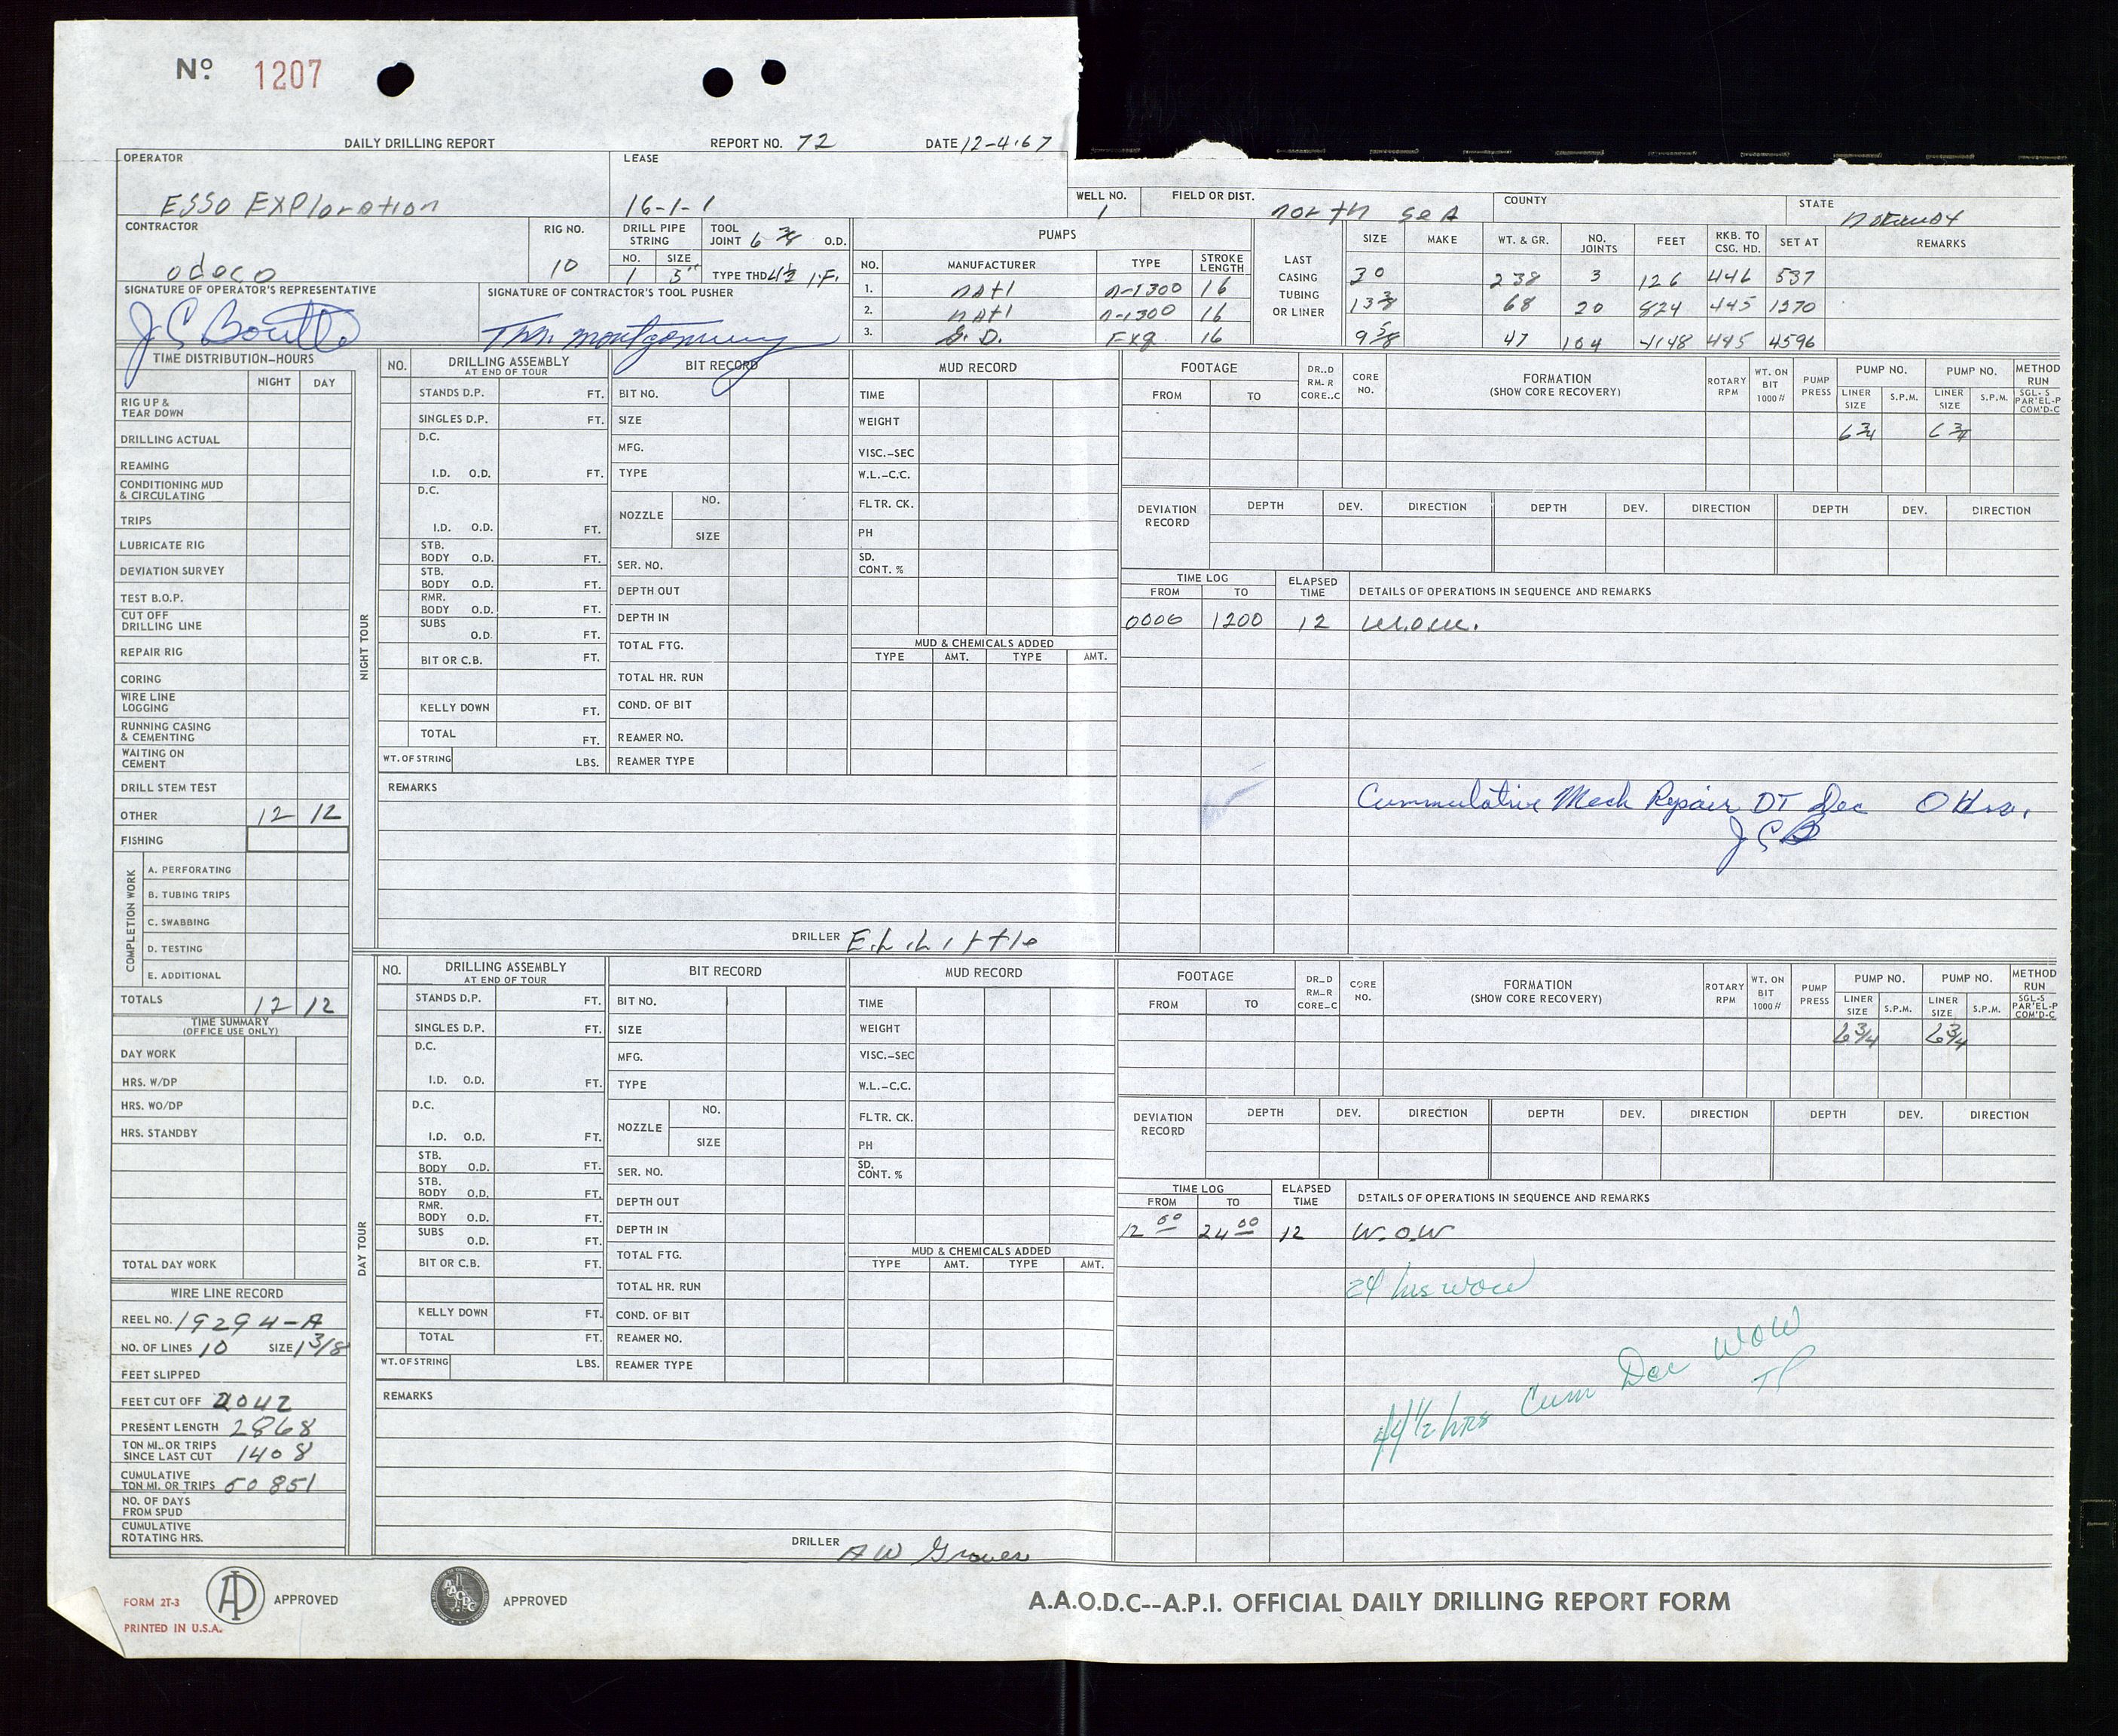 Nº 1207
DAILY DRILLING REPORT REPORT NO. 72 DATE 12-4-67
OPERATOR LEASE
ESSO EXPloration 16-1-1
WELL NO. 1 FIELD OR DIST. north sea COUNTY STATE
CONTRACTOR RIG NO. DRILL PIPE STRING TOOL JOINT 6 3/8 O.D. PUMPS
odeco 10 NO. 1 SIZE 5" TYPE THD 4½ I.F.
NO. MANUFACTURER TYPE STROKE LENGTH
1. nAtl n-1300 16
2. nAtl n-1300 16
3. G.D. FXQ 16
LAST CASING TUBING OR LINER
SIZE MAKE WT. & GR. NO. JOINTS FEET RKB. TO CSG. HD. SET AT REMARKS
30 238 3 126 446 537
13 3/8 68 20 824 445 1270
9 5/8 47 104 4148 445 4596
SIGNATURE OF OPERATOR'S REPRESENTATIVE SIGNATURE OF CONTRACTOR'S TOOL PUSHER
J C Boutte Thn. Montgomery
TIME DISTRIBUTION-HOURS
NIGHT DAY
RIG UP & TEAR DOWN
DRILLING ACTUAL
REAMING
CONDITIONING MUD & CIRCULATING
TRIPS
LUBRICATE RIG
DEVIATION SURVEY
TEST B.O.P.
CUT OFF DRILLING LINE
REPAIR RIG
CORING
WIRE LINE LOGGING
RUNNING CASING & CEMENTING
WAITING ON CEMENT
DRILL STEM TEST
OTHER 12 12
FISHING
COMPLETION WORK
A. PERFORATING
B. TUBING TRIPS
C. SWABBING
D. TESTING
E. ADDITIONAL
TOTALS 12 12
TIME SUMMARY
(OFFICE USE ONLY)
DAY WORK
HRS. W/DP
HRS. WO/DP
HRS. STANDBY
TOTAL DAY WORK
WIRE LINE RECORD
REEL NO. 19294-A
NO. OF LINES 10 SIZE 1 3/8
FEET SLIPPED
FEET CUT OFF 2042
PRESENT LENGTH 2868
TON MI. OR TRIPS SINCE LAST CUT 1408
CUMULATIVE TON MI. OR TRIPS 50851
NO. OF DAYS FROM SPUD
CUMULATIVE ROTATING HRS.
NIGHT TOUR
NO. DRILLING ASSEMBLY
AT END OF TOUR
STANDS D.P. FT.
SINGLES D.P. FT.
D.C.
I.D. O.D. FT.
D.C.
I.D. O.D. FT.
STB. BODY O.D. FT.
STB. BODY O.D. FT.
RMR. BODY O.D. FT.
SUBS O.D. FT.
BIT OR C.B. FT.
KELLY DOWN FT.
TOTAL FT.
WT. OF STRING LBS.
BIT RECORD
BIT NO.
SIZE
MFG.
TYPE
NOZZLE NO.
SIZE
SER. NO.
DEPTH OUT
DEPTH IN
TOTAL FTG.
TOTAL HR. RUN
COND. OF BIT
REAMER NO.
REAMER TYPE
MUD RECORD
TIME
WEIGHT
VISC.-SEC
W.L.-C.C.
FLTR. CK.
PH
SD. CONT. %
MUD & CHEMICALS ADDED
TYPE AMT. TYPE AMT.
REMARKS
DRILLER E.L. Little
FOOTAGE DR..D RM..R CORE..C CORE NO. FORMATION (SHOW CORE RECOVERY) ROTARY RPM WT. ON BIT 1000# PUMP PRESS PUMP NO. PUMP NO. METHOD RUN
FROM TO LINER SIZE S.P.M. LINER SIZE S.P.M. SGL-S PAR'EL-P COM'D-C
6 3/4 6 3/4
DEVIATION RECORD DEPTH DEV. DIRECTION DEPTH DEV. DIRECTION DEPTH DEV. DIRECTION
TIME LOG ELAPSED TIME DETAILS OF OPERATIONS IN SEQUENCE AND REMARKS
FROM TO
0000 1200 12 W.O.W.
Cummulative Mech Repair DT Dec 0 Hrs.
JCB
DAY TOUR
NO. DRILLING ASSEMBLY
AT END OF TOUR
STANDS D.P. FT.
SINGLES D.P. FT.
D.C.
I.D. O.D. FT.
D.C.
I.D. O.D. FT.
STB. BODY O.D. FT.
STB. BODY O.D. FT.
RMR. BODY O.D. FT.
SUBS O.D. FT.
BIT OR C.B. FT.
KELLY DOWN FT.
TOTAL FT.
WT. OF STRING LBS.
BIT RECORD
BIT NO.
SIZE
MFG.
TYPE
NOZZLE NO.
SIZE
SER. NO.
DEPTH OUT
DEPTH IN
TOTAL FTG.
TOTAL HR. RUN
COND. OF BIT
REAMER NO.
REAMER TYPE
MUD RECORD
TIME
WEIGHT
VISC.-SEC
W.L.-C.C.
FLTR. CK.
PH
SD. CONT. %
MUD & CHEMICALS ADDED
TYPE AMT. TYPE AMT.
REMARKS
DRILLER AW Graves
FOOTAGE DR..D RM..R CORE..C CORE NO. FORMATION (SHOW CORE RECOVERY) ROTARY RPM WT. ON BIT 1000# PUMP PRESS PUMP NO. PUMP NO. METHOD RUN
FROM TO LINER SIZE S.P.M. LINER SIZE S.P.M. SGL-S PAR'EL-P COM'D-C
6 3/4 6 3/4
DEVIATION RECORD DEPTH DEV. DIRECTION DEPTH DEV. DIRECTION DEPTH DEV. DIRECTION
TIME LOG ELAPSED TIME DETAILS OF OPERATIONS IN SEQUENCE AND REMARKS
FROM TO
12 00 24 00 12 W.O.W
24 hrs wow
44 1/2 hrs Cum Dec WOW
TP
FORM 2T-3
PRINTED IN U.S.A.
API APPROVED
AAODC APPROVED
A.A.O.D.C--A.P.I. OFFICIAL DAILY DRILLING REPORT FORM